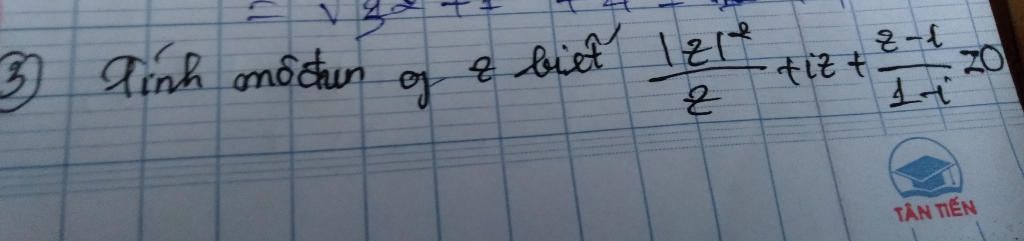 3) Tính môđun of z biết |z|²/z + iz + (z-i)/(1-i) = 0
TÂN TIẾN